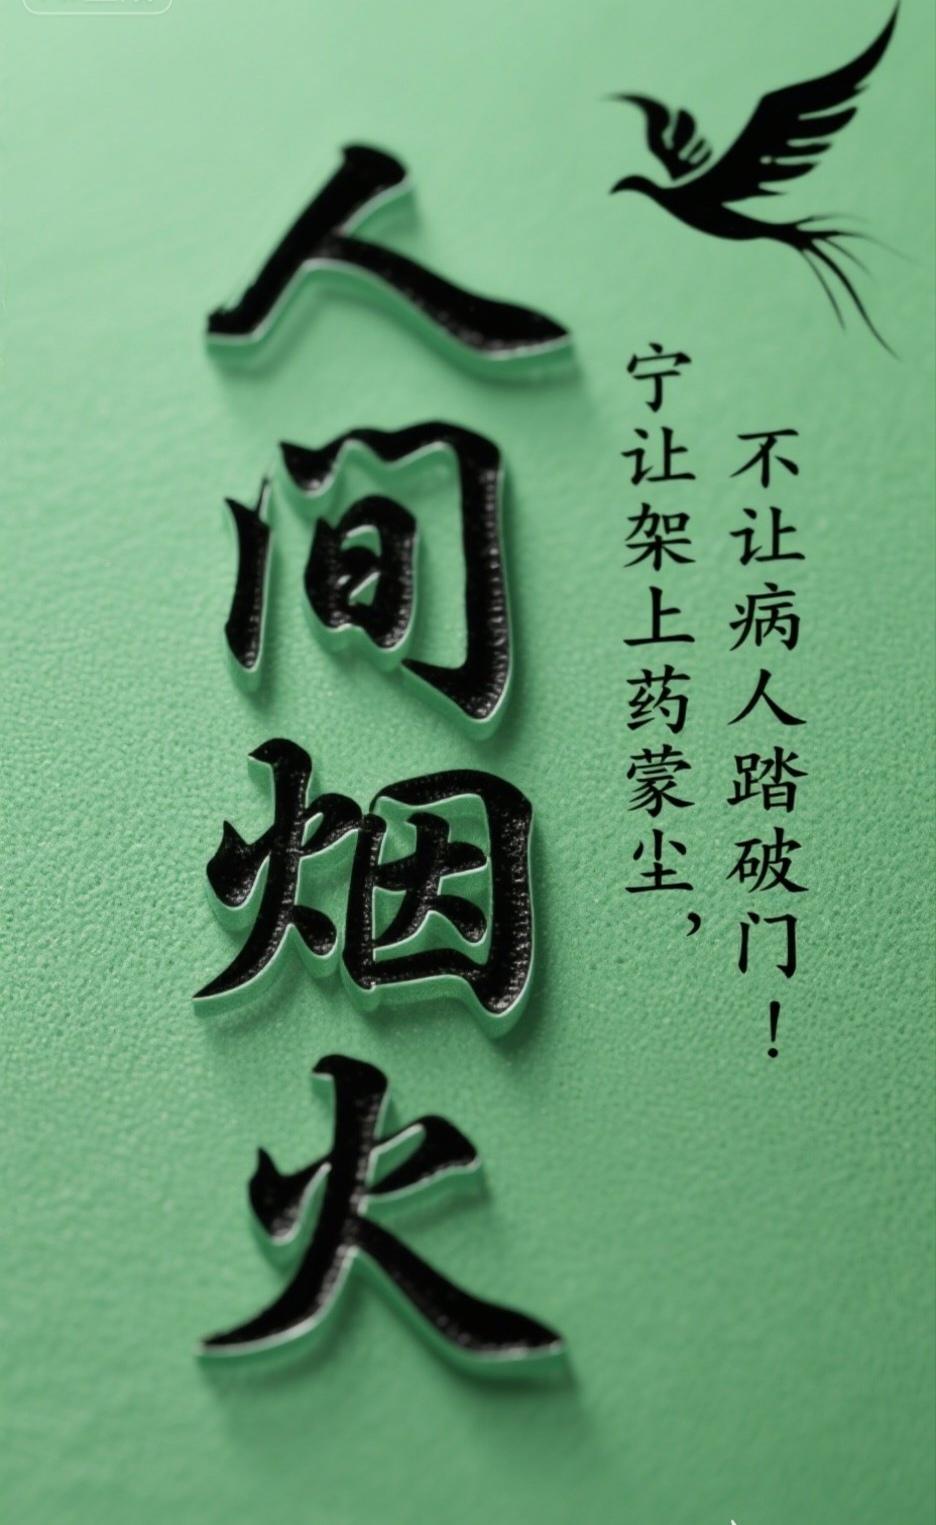 人间烟火
宁让架上药蒙尘，
不让病人踏破门！